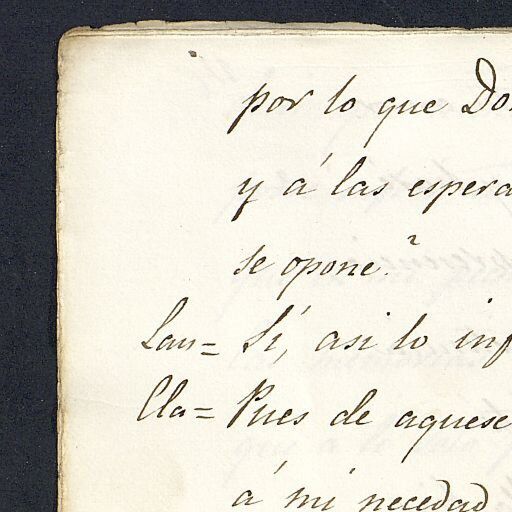 por lo que Do
y á las espera
se opone?
Lau= Sí, asi lo inf
Cla= Pues de aquese
á mi necedad